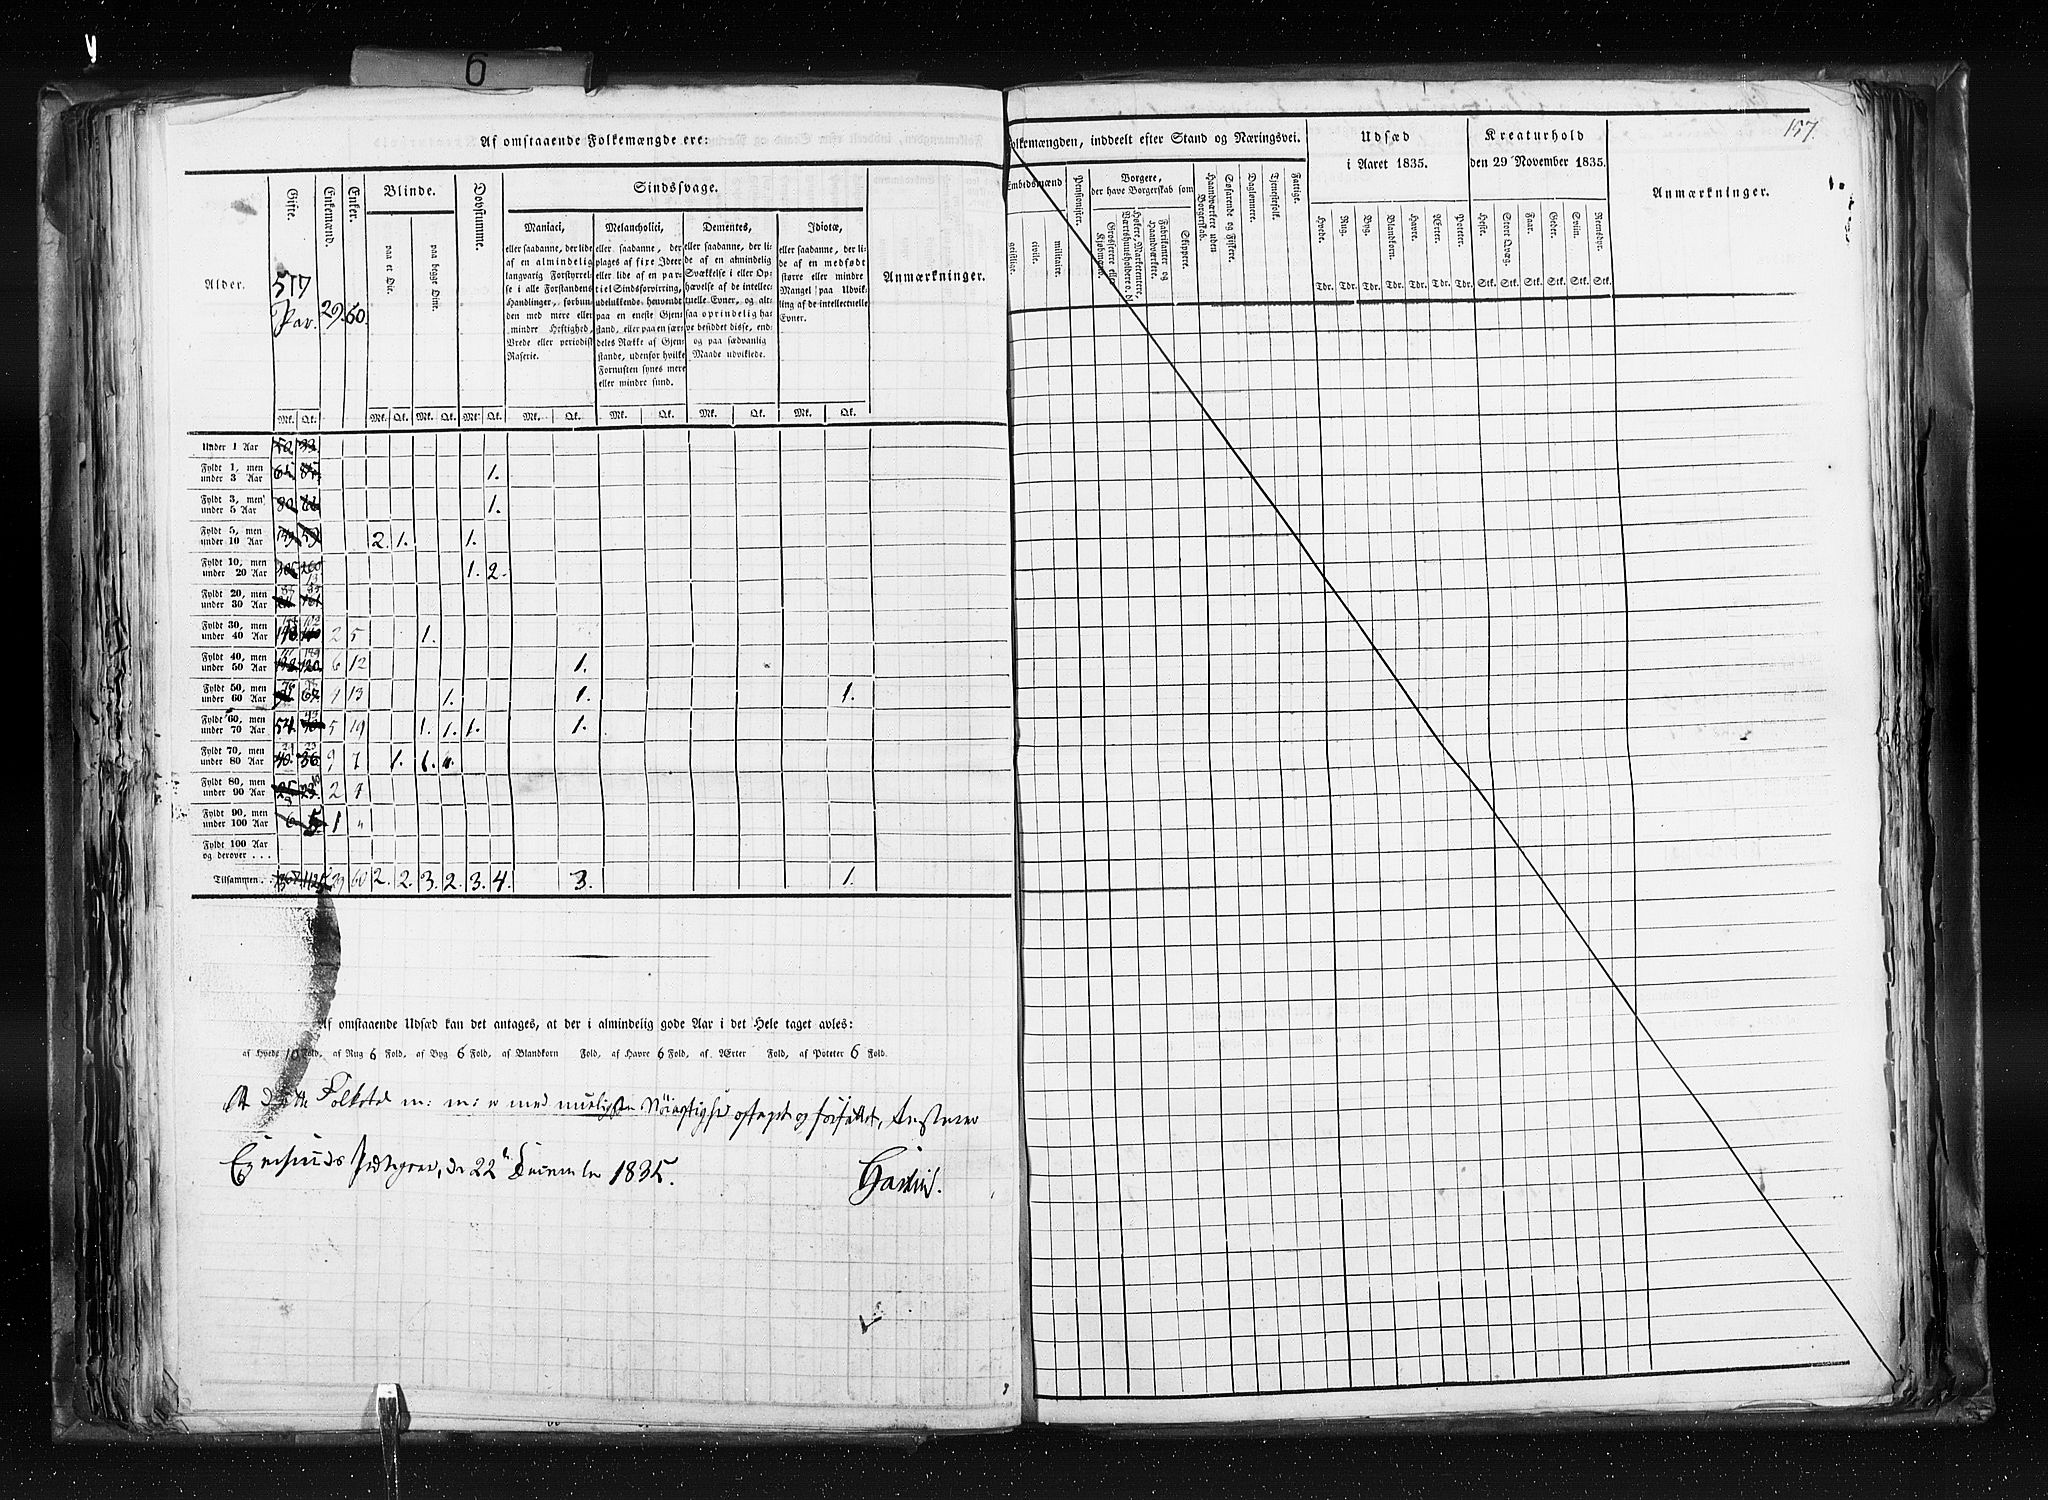 6
Af omstaaende Folkemængde ere:
Alder.
Gifte.
Enkemænd.
Enker.
Blinde.
paa et Øie.
paa begge Øine.
Døvstumme.
Sindssvage.
Maniaci,
eller saadanne, der lide
af en almindelig
langvarig Forstyrrel-
se i alle Forstandens
Handlinger, forbun-
den med mere eller
mindre Heftighed,
Vrede eller periodisk
Raserie.
Melancholici,
eller saadanne, der
plages af fixe Ideer
eller lide af en par-
tiel Sindsforvirring,
udelukkende henvendt
paa en eneste Gjen-
stand, eller paa en sær-
deles Række af Gjen-
stande, udenfor hvilke
Fornuften synes mere
eller mindre sund.
Dementes,
eller saadanne, der li-
de af en almindelig
Svækkelse i eller Op-
hævelse af de intellec-
tuelle Evner, og alt-
saa oprindelig ha-
ve besiddet disse, end-
og paa sædvanlig
Maade udviklede.
Idiotæ,
eller saadanne, der li-
de af en medfødt
større eller mindre
Mangel paa Udvik-
ling af de intellectuelle
Evner.
Anmærkninger.
517 Par.
29.
60.
Mk. Qk. Mk. Qk. Mk. Qk. Mk. Qk. Mk. Qk. Mk. Qk. Mk. Qk. Mk. Qk.
Under 1 Aar
Fyldt 1, men under 3 Aar 1.
Fyldt 3, men under 5 Aar 1.
Fyldt 5, men under 10 Aar 2. 1. 1.
Fyldt 10, men under 20 Aar 1. 2.
Fyldt 20, men under 30 Aar
Fyldt 30, men under 40 Aar 2 5 1.
Fyldt 40, men under 50 Aar 6 12 1.
Fyldt 50, men under 60 Aar 4 13 1. 1. 1.
Fyldt 60, men under 70 Aar 5 19 1. 1. 1. 1.
Fyldt 70, men under 80 Aar 9 7 1. 1.
Fyldt 80, men under 90 Aar 2 4
Fyldt 90, men under 100 Aar 1 "
Fyldt 100 Aar og derover . . .
Tilsammen . . 29 60 2. 2. 3. 2. 3. 4. 3. 1.
Af omstaaende Udsæd kan det antages, at der i almindelig gode Aar i det Hele taget avles:
af Hvede 10 Fold, af Rug 6 Fold, af Byg 6 Fold, af Blandkorn Fold, af Havre 6 Fold, af Ærter Fold, af Poteter 6 Fold.
At dette Folketal m: m: er med muligste Nøiagtighed optaget og forfattet,
Egersunds Præstegaard, den 22de December 1835.
157.
Folkemængden, inddeelt efter Stand og Næringsvei.
Embedsmænd
geistlige.
civile.
militaire.
Pensionister.
Borgere,
der have Borgerskab som
Grosserere eller Kjøbmænd.
Høkere, Marketentere, Værtshuusholdere o. dl.
Fabrikanter og Haandværkere.
Skippere.
Haandværkere uden Borgerskab.
Søfarende og Fiskere.
Dagløonnere.
Tjenestefolk.
Fattige.
Udsæd
i Aaret 1835.
Hvede.
Rug.
Byg.
Blandkorn.
Havre.
Ærter.
Poteter.
Tdr. Tdr. Tdr. Tdr. Tdr. Tdr. Tdr.
Kreaturhold
den 29 November 1835.
Heste.
Stort Qvæg.
Faar.
Geder.
Sviin.
Reensdyr.
Stk. Stk. Stk. Stk. Stk. Stk.
Anmærkninger.